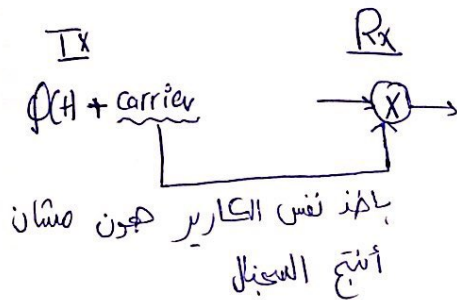 Tx
Rx
φ(t) + carrier
X
باخذ نفس الكارير هون مشان
أنتج السجنال